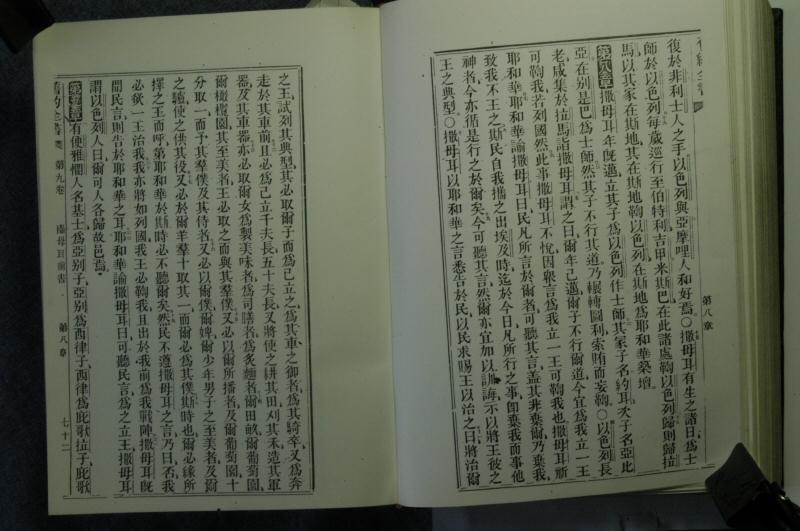 第八章
復於非利士人之手以色列與亞摩哩人和好焉〇撒母耳有生之諸日爲士
師於以色列每歲巡行至伯特利吉甲米斯巴在此諸處鞫以色列歸則歸拉
馬以其家在斯地其在斯地鞫以色列在斯地爲耶和華築壇
第八章 撒母耳年旣邁立其子爲以色列作士師其冢子名約耳次子名亞比
亞在别是巴爲士師然其子不行其道乃輾轉圖利索賄而妄鞫〇以色列長
老咸集於拉馬詣撒母耳謂之曰爾年已邁爾子不行爾道今宜爲我立一王
可鞫我若列國然此事撒母耳不悅因衆言爲我立一王可鞫我也撒母耳祈
耶和華耶和華諭撒母耳曰民凡所言於爾者可聽其言蓋其非棄爾乃棄我
致我不王之斯民自我攜之出埃及時迄於今日凡所行之事卽棄我而事他
神者今亦循是行之於爾矣今可聽其言然爾亦宜加以訓誨示以將王彼之
王之典型〇撒母耳以耶和華之言悉告於民以民求賜王以治之曰將治爾
之王試列其典型其必取爾子而爲己立之爲其車之御者爲其騎卒又爲奔
走於其車前且必爲己立千夫長五十夫長又將使之耕其田刈其禾造其軍
器及其車器亦必取爾女爲製美味者爲司膳者爲炙麵者爾田畝爾葡萄園
爾橄欖園其至美者王必取之而與其羣僕又必以爾所播者及爾葡萄園十
分取一而予其羣僕及其侍者又必以爾僕爾婢爾少年男子之至美者及爾
之驢使之供其役又必於爾羊羣十取其一而爾必爲其僕斯時也爾必緣所
擇之王而呼籲耶和華於斯時必不聽爾矣然民不遵撒母耳之言乃曰否我
必欲一王治我我亦將如列國我王必鞫我且出於我前爲我戰陣撒母耳旣
聞民言則告於耶和華之耳耶和華諭撒母耳曰可聽民言爲之立王撒母耳
謂以色列人曰爾可人各歸故邑焉
第九章 有便雅憫人名基士爲亞别子亞别爲西律子西律爲庇歌拉子庇歌
舊約全書 第九卷 撒母耳前書 第八章 七十二